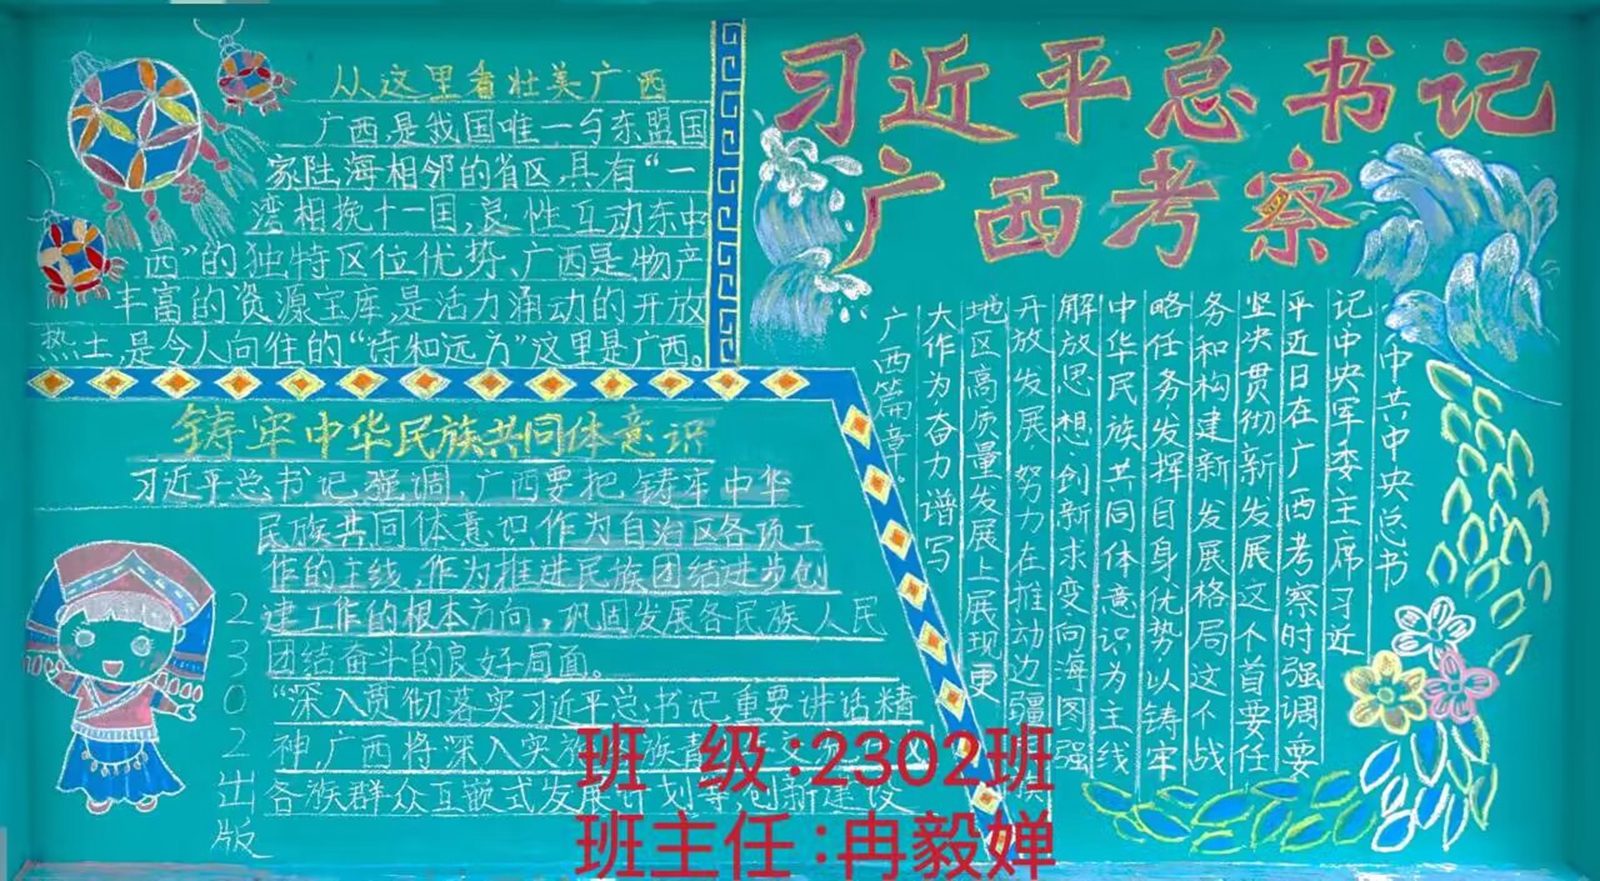 习近平总书记
广西考察
从这里看壮美广西
广西,是我国唯一与东盟国
家陆海相邻的省区,具有“一
湾相挽十一国,良性互动东中
西”的独特区位优势、广西是物产
丰富的资源宝库,是活力涌动的开放
热土,是令人向往的“诗和远方”这里是广西。
铸牢中华民族共同体意识
习近平总书记强调,广西要把铸牢中华
民族共同体意识作为自治区各项工
作的主线,作为推进民族团结进步创
建工作的根本方向,巩固发展各民族人民
团结奋斗的良好局面。
“深入贯彻落实习近平总书记重要讲话精
神,广西将深入实施各族青
各族群众互嵌式发展计划等,创新建设
2302出版
中共中央总书
记中央军委主席习近
平近日在广西考察时强调要
坚决贯彻新发展这个首要任
务和构建新发展格局这个战
略任务发挥自身优势以铸牢
中华民族共同体意识为主线
解放思想创新求变向海图强
开放发展,努力在推动边疆
地区高质量发展上展现更
大作为奋力谱写
广西篇章。
班 级:2302班
班主任:冉毅婵